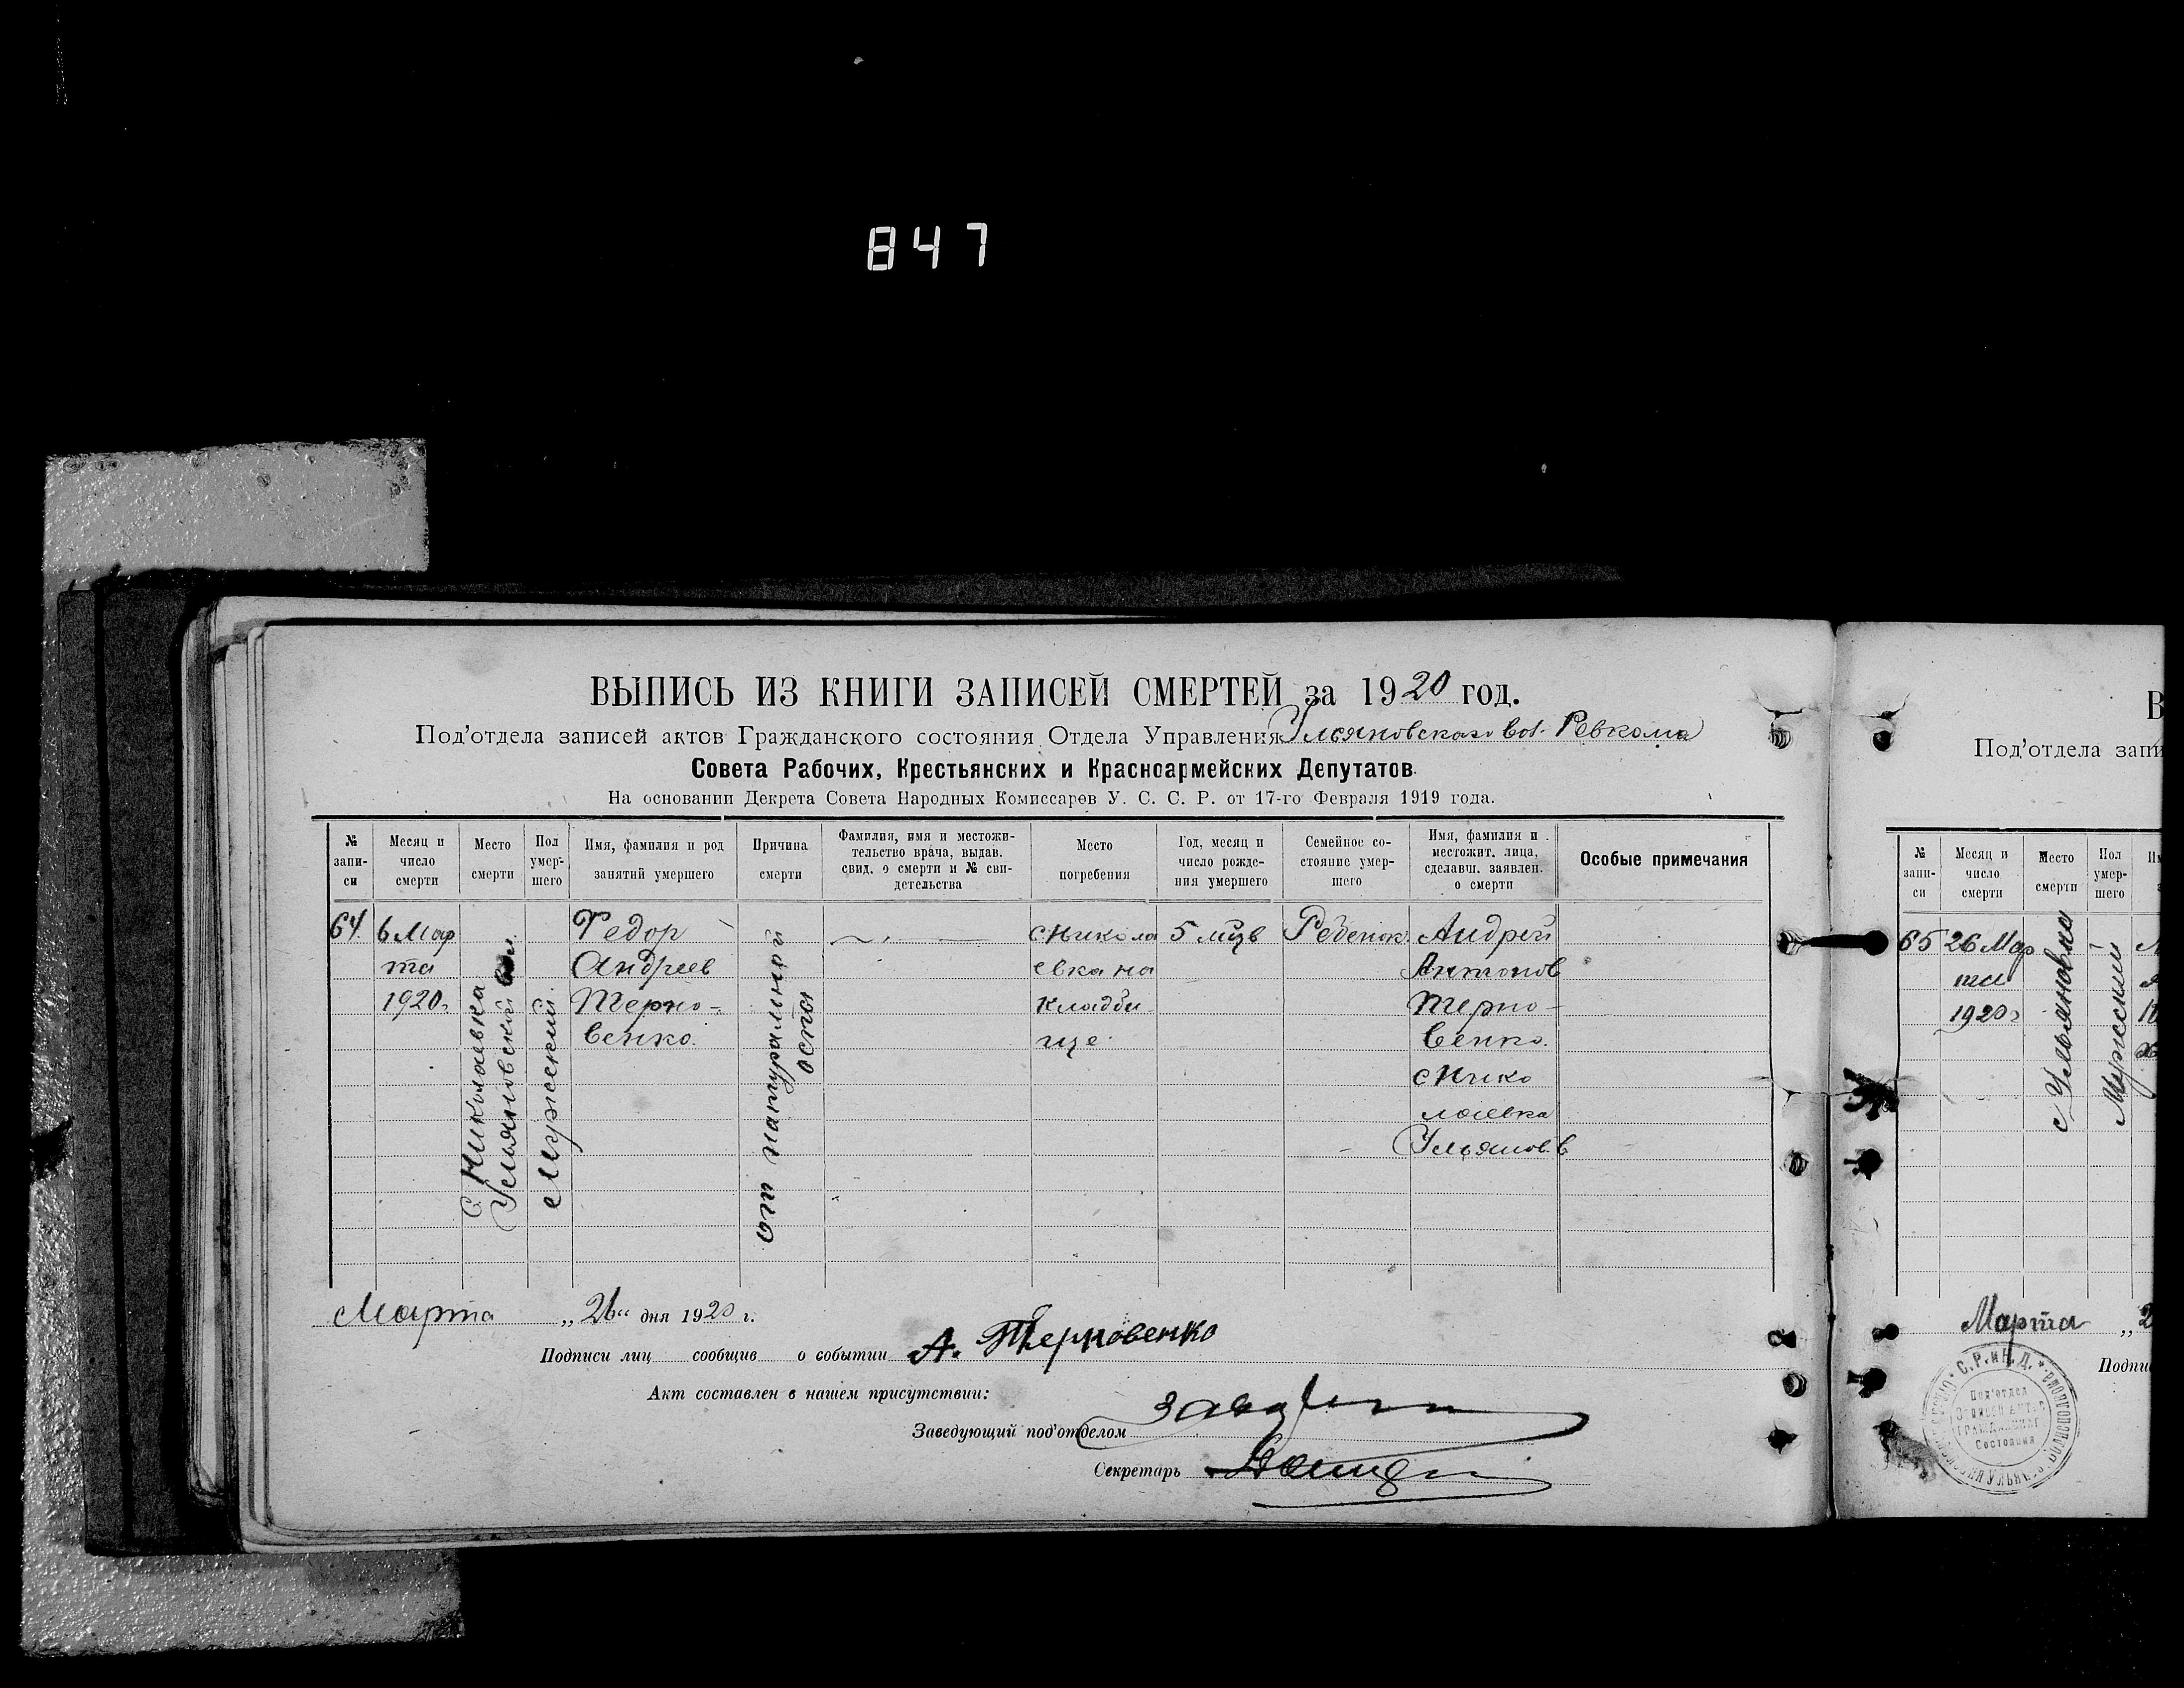 847
ВЫПИСЬ ИЗ КНИГИ ЗАПИСЕЙ СМЕРТЕЙ за 1920 год.
Под'отдела записей актов Гражданского состояния Отдела Управления Ульяновскаго вол. Ревкома
Совета Рабочих, Крестьянских и Красноармейских Депутатов.
На основании Декрета Совета Народных Комиссаров У. С. С. Р. от 17-го Февраля 1919 года.
№ запи-
си
Месяц и
число
смерти
Место
смерти
Пол
умер-
шего
Имя, фамилия и род
занятий умершего
Причина
смерти
Фамилия, имя и местожи-
тельство врача, выдав.
свид. о смерти и № сви-
детельства
Место
погребения
Год, месяц и
число рожде-
ния умершего
Семейное со-
стояние умер-
шего
Имя, фамилия и
местожит. лица,
сделавш. заявлен.
о смерти
Особые примечания
64.
6 Мар
та
1920 г.
с. Николаевка
Ульяновской вол.
Мужский.
Федор
Андреев
Терно-
венко.
от натуральной
оспы
с Никола
евка на
кладби-
ще.
5 мцв
Ребенок.
Андрей
Антонов
Терно-
венко.
с Нико
лаевка
Ульянов. в.
Марта „26“ дня 1920 г.
Подписи лиц сообщив о событии А. Терновенко
Акт составлен в нашем присутствии:
Заведующий под'отделом
Секретарь
В
Под'отдела запи
№
запи-
си
Месяц и
число
смерти
Место
смерти
Пол
умер-
шего
65
26 Мар
та
1920 г
с Ульяновка
Мужский
Марта „2
Подпи
С.Р. и К.Д.
Под'отдел
Записей Актов
Гражданск
Состояния